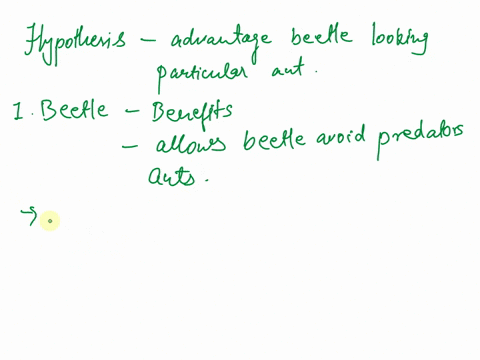 Hypothesis - advantage beetle looking
particular ant.
1. Beetle - Benefits
- allows beetle avoid predators
ants.
→